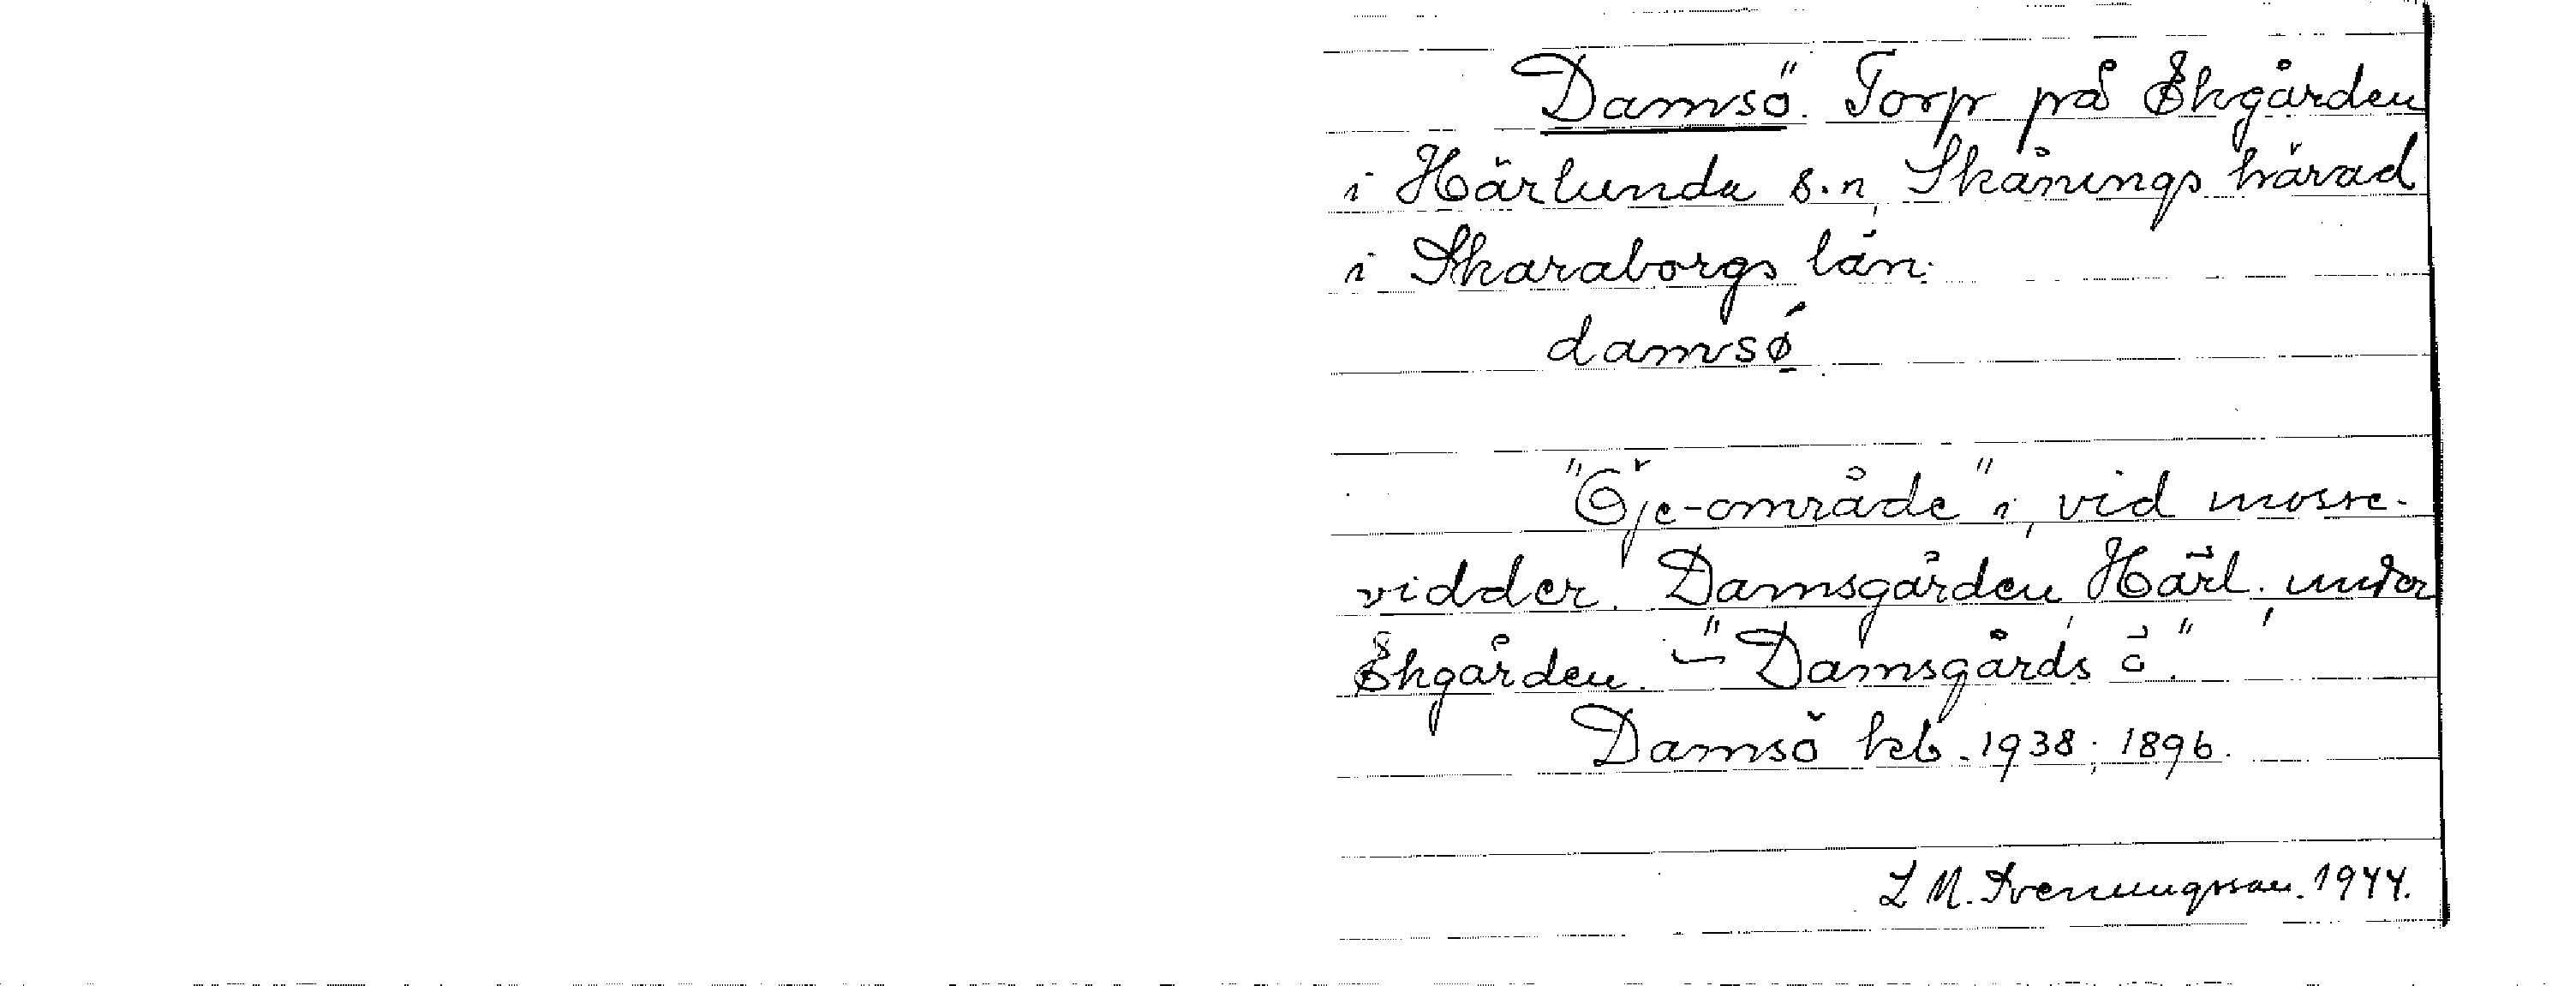 Damsö. Torp på Ekgården
i Härlunda s.n, Skånings härad
i Skaraborgs län.
damsǿ̱
"Öje-område" i, vid mosse-
vidder. Damsgården, Härl., under
Ekgården. ~ "Damsgårds ö".
Damsö kb. 1938; 1896.
L M. Svenungsson. 1944.